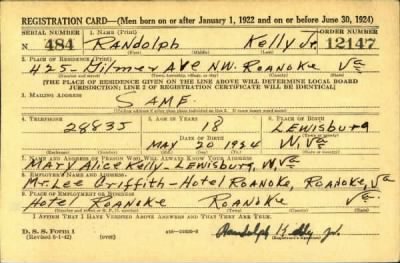 REGISTRATION CARD—(Men born on or after January 1, 1922 and on or before June 30, 1924)
SERIAL NUMBER 1. NAME (Print) ORDER NUMBER
N 484 RANDOLPH Kelly Jr. 12147
(First) (Middle) (Last)
2. PLACE OF RESIDENCE (Print)
425- Gilmer Ave N.W. ROANOKE Va
(Number and street) (Town, township, village, or city) (County) (State)
[THE PLACE OF RESIDENCE GIVEN ON THE LINE ABOVE WILL DETERMINE LOCAL BOARD
JURISDICTION; LINE 2 OF REGISTRATION CERTIFICATE WILL BE IDENTICAL]
3. MAILING ADDRESS
SAME
4. TELEPHONE 5. AGE IN YEARS 6. PLACE OF BIRTH
28835 18 LEWISBURG
DATE OF BIRTH
MAY 20 1924 W. Va
(Exchange) (Number) (Mo.) (Day) (Yr.) (State or country)
7. NAME AND ADDRESS OF PERSON WHO WILL ALWAYS KNOW YOUR ADDRESS
MARY Alice Kelly- LEWISBURG, W. Va
8. EMPLOYER'S NAME AND ADDRESS
Mr. Lee Griffith- Hotel ROANOKE, ROANOKE, Va
9. PLACE OF EMPLOYMENT OR BUSINESS
Hotel ROANOKE ROANOKE Va.
I AFFIRM THAT I HAVE VERIFIED ABOVE ANSWERS AND THAT THEY ARE TRUE.
D. S. S. Form 1
(Revised 6-1-42) (over) Randolph Kelly Jr.